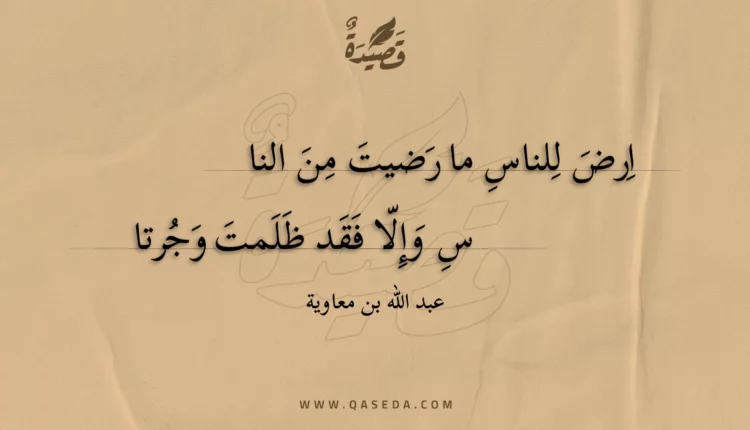 قَصِيدَةٌ
اِرضَ لِلناسِ ما رَضيتَ مِنَ النا
سِ وَإِلّا فَقَد ظَلَمتَ وَجُرتا
عبد الله بن معاوية
WWW.QASEDA.COM